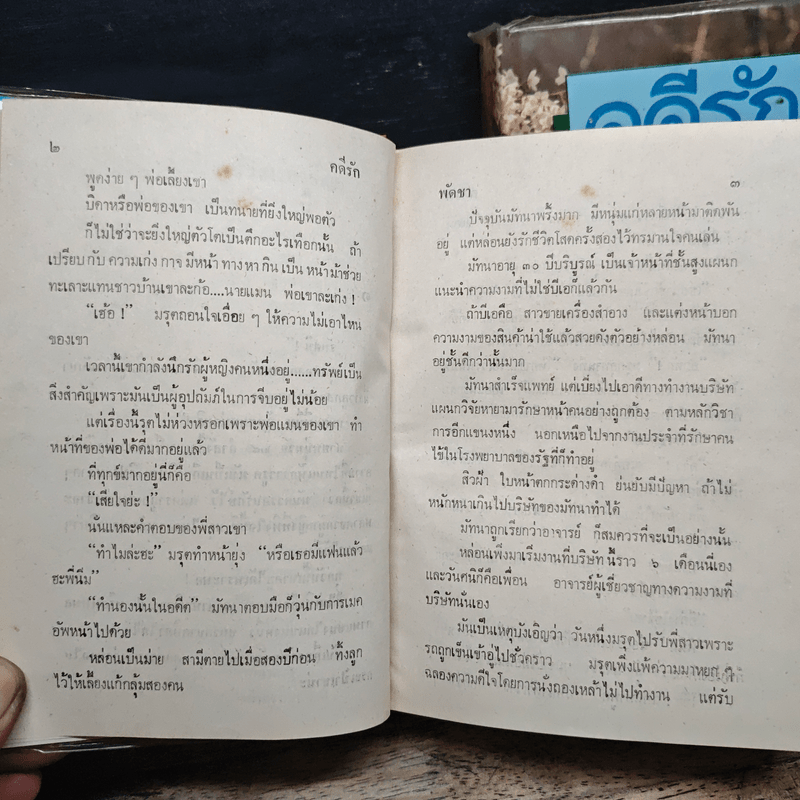 คดีรัก
๒
คดีรัก
พูดง่าย ๆ พ่อเลี้ยงเขา
บิดาหรือพ่อของเขา เป็นทนายที่ยิ่งใหญ่พอตัว
ก็ไม่ใช่ว่าจะยิ่งใหญ่ตัวโตเป็นตึกอะไรเทือกนั้น ถ้า
เปรียบ กับ ความเก่ง กาจ มีหน้า ทาง หา กิน เป็น หน้าม้าช่วย
ทะเลาะแทนชาวบ้านเขาละก้อ....นายแมน พ่อเขาละเก่ง !
“เฮ้อ !” มรุตถอนใจเอื่อย ๆ ให้ความไม่เอาไหน
ของเขา
เวลานี้เขากำลังนึกรักผู้หญิงคนหนึ่งอยู่......ทรัพย์เป็น
สิ่งสำคัญเพราะมันเป็นผู้อุปถัมภ์ในการจีบอยู่ไม่น้อย
แต่เรื่องนี้รุตไม่ห่วงหรอกเพราะพ่อแมนของเขา ทำ
หน้าที่ของพ่อได้ดีมากอยู่แล้ว
ที่ทุกข์มากอยู่นี่ก็คือ
“เสียใจย่ะ !”
นั่นแหละคำตอบของพี่สาวเขา
“ทำไมล่ะฮะ” มรุตทำหน้ายุ่ง “หรือเธอมีแฟนแล้ว
ฮะพี่นึม”
“ทำนองนั้นในอดีต” มัทนาตอบมือก็วุ่นกับการเมค
อัพหน้าไปด้วย
หล่อนเป็นม่าย สามีตายไปเมื่อสองปีก่อน ทิ้งลูก
ไว้ให้เลี้ยงแก้กลุ้มสองคน
พัดชา
๓
ปัจจุบันมัทนาพริ้งมาก มีหนุ่มแก่หลายหน้ามาติดพัน
อยู่ แต่หล่อนยังรักชีวิตโสดครั้งสองไว้ทรมานใจคนเล่น
มัทนาอายุ ๓๐ ปีบริบูรณ์ เป็นเจ้าหน้าที่ชั้นสูงแผนก
แนะนำความงามที่ไม่ใช่บีเอก็แล้วกัน
ถ้าบีเอคือ สาวขายเครื่องสำอาง และแต่งหน้าบอก
ความงามของสินค้าน่าใช้แล้วสวยดังตัวอย่างหล่อน มัทนา
อยู่ชั้นดีกว่านั้นมาก
มัทนาสำเร็จแพทย์ แต่เบี่ยงไปเอาดีทางทำงานบริษัท
แผนกวิจัยหายามารักษาหน้าคนอย่างถูกต้อง ตามหลักวิชา
การอีกแขนงหนึ่ง นอกเหนือไปจากงานประจำที่รักษาคน
ไข้ในโรงพยาบาลของรัฐที่ก็ทำอยู่
สิวฝ้า ใบหน้าตกกระด่างดำ ย่นยับมีปัญหา ถ้าไม่
หนักหนาเกินไปบริษัทของมัทนาทำได้
มัทนาถูกเรียกว่าอาจารย์ ก็สมควรที่จะเป็นอย่างนั้น
หล่อนเพิ่งมาเริ่มงานที่บริษัท นี้ราว ๖ เดือนนี่เอง
และวันศนิก็คือเพื่อน อาจารย์ผู้เชี่ยวชาญทางความงามที่
บริษัทนั่นเอง
มันเป็นเหตุบังเอิญว่า วันหนึ่งมรุตไปรับพี่สาวเพราะ
รถถูกเข็นเข้าอู่ไปชั่วคราว มรุตเพิ่งแพ้ความมาหยก ๆ
ฉลองความดีใจโดยการนั่งถองเหล้าไม่ไปทำงาน แต่รับ